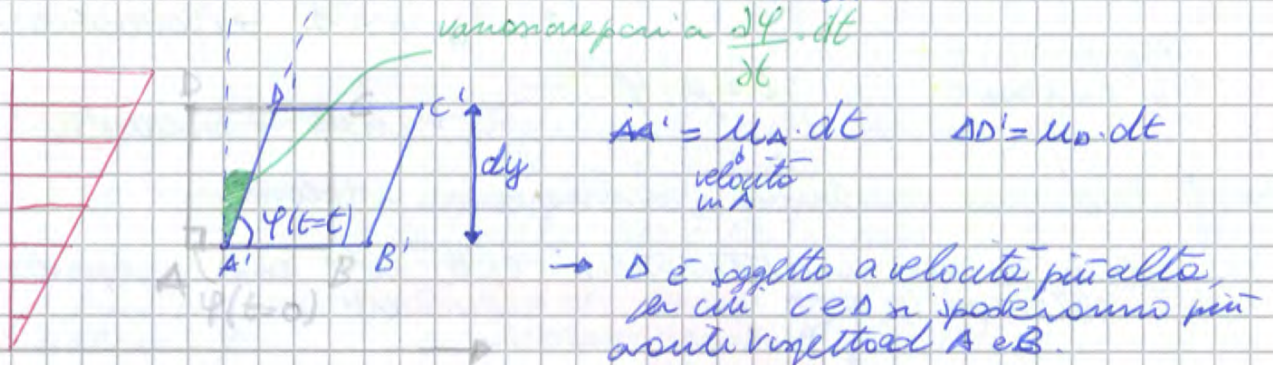 variazione pari a ∂φ/∂t · dt
D D' C C'
AA' = u_A · dt DD' = u_D · dt
velocità
in A
dy
φ(t=t)
A' B'
A B
φ(t=0)
→ D è soggetto a velocità più alta,
per cui C e D si sposteranno più
avanti rispetto ad A e B.